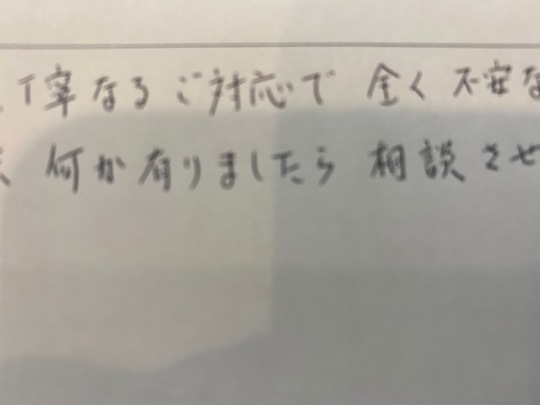 丁寧なるご対応で 全く不安な
何か有りましたら 相談させ